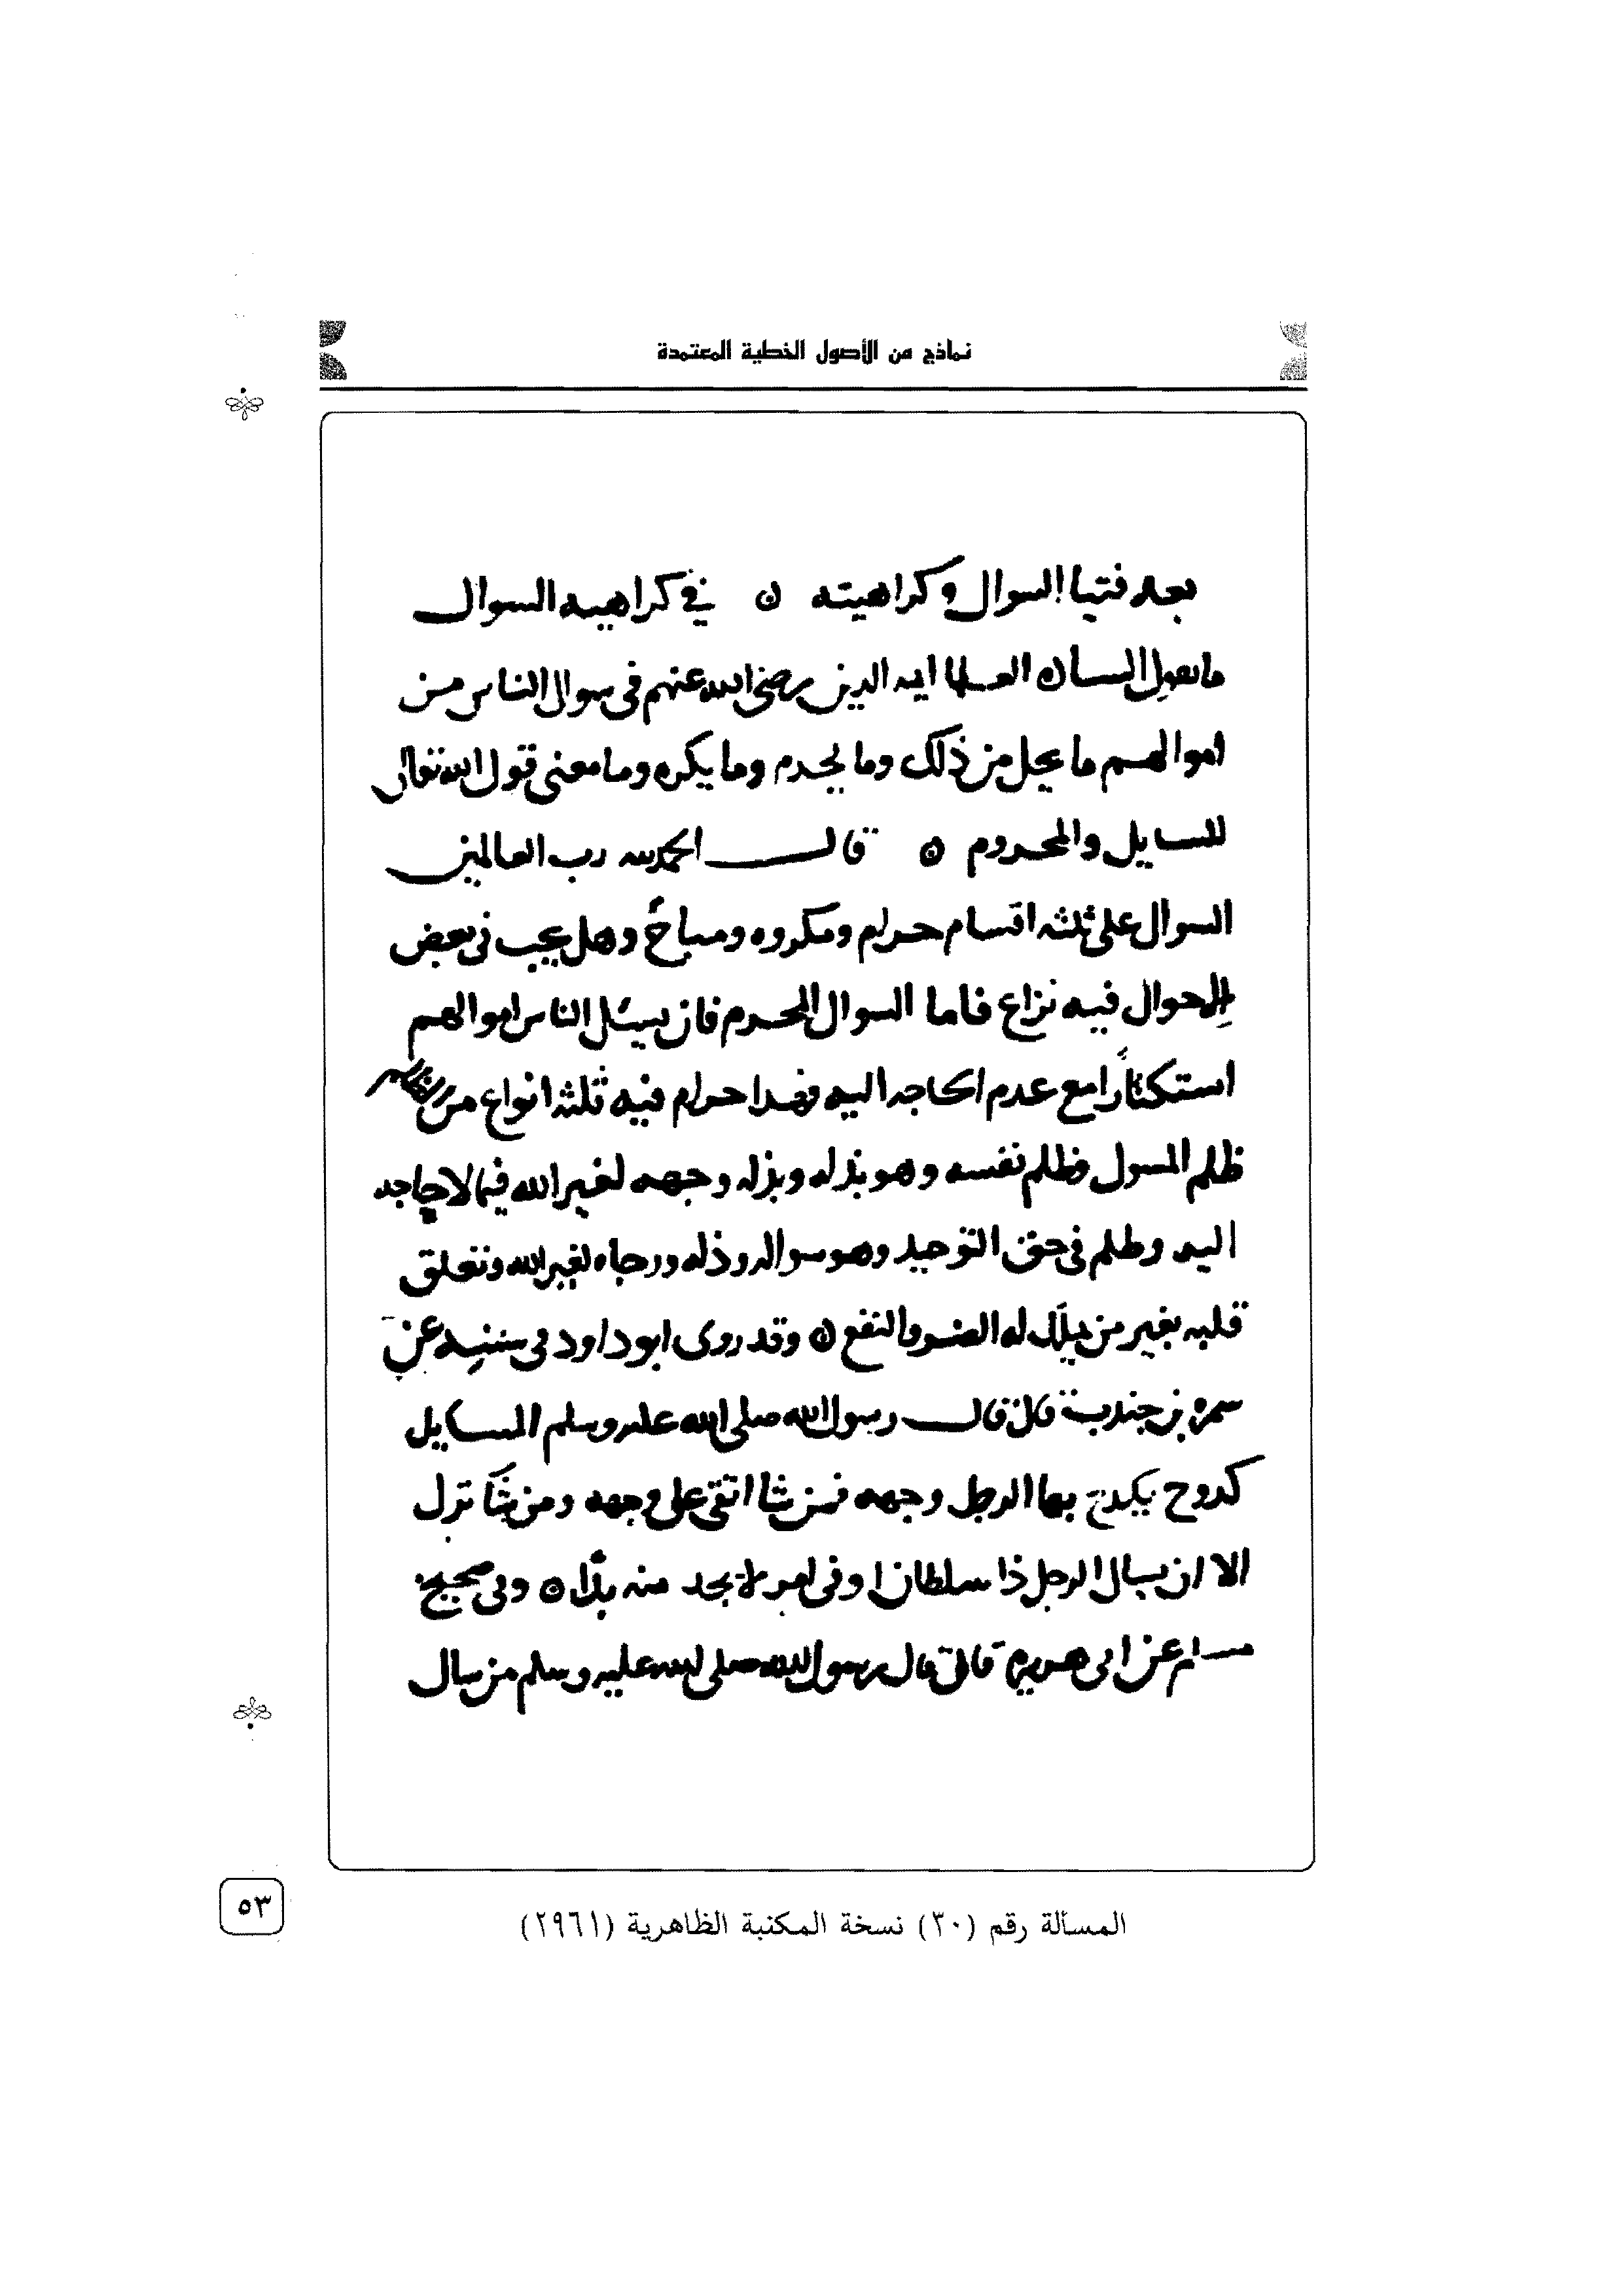 نماذج من الأصول الخطية المعتمدة
بعده فتيا السوال وكراهيته ن في كراهيه السوال
ما يقول الساده العلما ايمه الدين رضي الله عنهم في سوال الناس من
اموالهم ما يحل من ذلك وما يحرم وما يكره وما معنى قول الله تعالى
للسايل والمحروم ن قال الحمد لله رب العالمين
السوال على ثلثه اقسام حرام ومكروه ومباح وهل يجب في بعض
الاحوال فيه نزاع فاما السوال المحرم فان يسئل الناس اموالهم
استكثارا مع عدم الحاجه اليه فهذا حرام فيه ثلثه انواع من الظلم
ظلم المسول وظلم نفسه وهو بذله وبزله وجهه لغير الله فيما لا حاجه
اليه وظلم في حق التوحيد وهو سواله وذله ورجاه لغير الله وتعلق
قلبه بغير من يملك له الضر والنفع ن وقد روى ابو داود في سننه عن
سمره بن جندب قال قال رسول الله صلى الله عليه وسلم المسايل
كدوح يكدح بها الرجل وجهه فمن شا اتقى على وجهه ومن شا ترك
الا ان يسال الرجل ذا سلطان او في امر لا يجد منه بدا ن وفي صحيح
مسلم عن ابي هريرة قال قال رسول الله صلى الله عليه وسلم من سال
المسألة رقم (٣٠) نسخة المكتبة الظاهرية (٢٩٦١)
٥٣